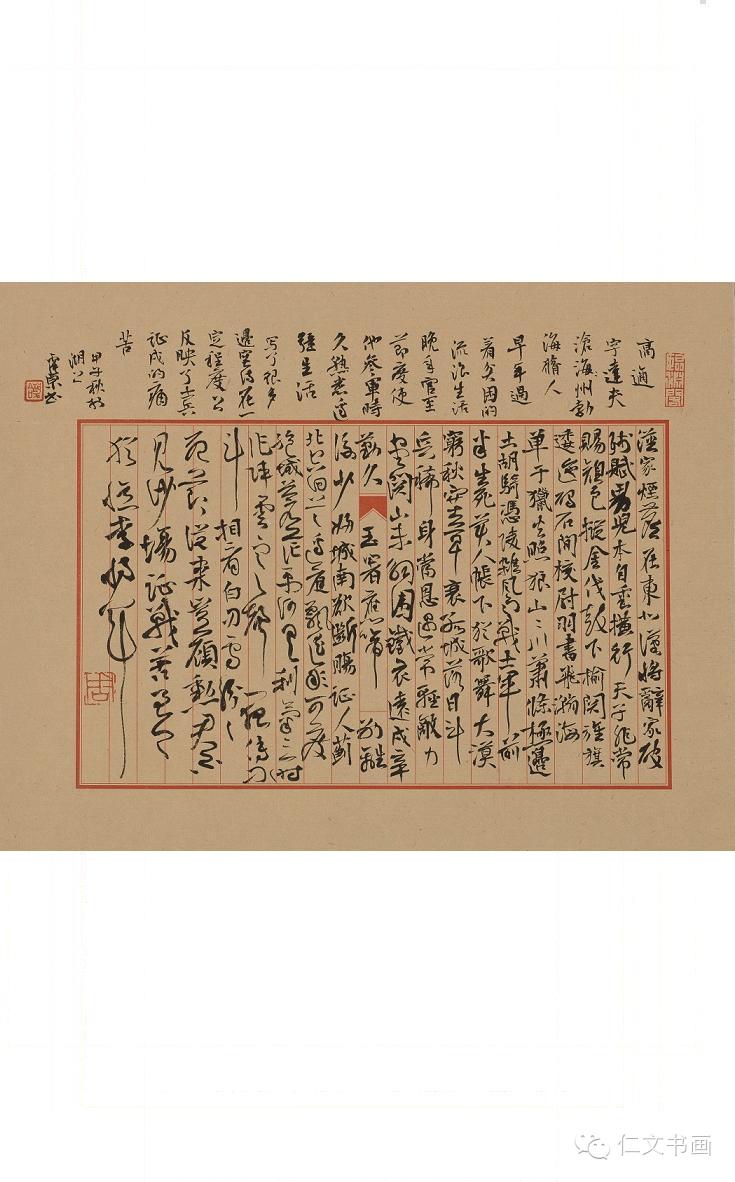 高適
字達夫
滄海州渤
海脩人
早年過
着貧困的
流浪生活
晚年官至
節度使
他參軍時
久熟悉邊
疆生活
寫了很多
邊塞詩在一
定程度上
反映了士兵
征戍的痛
苦
甲午秋於
湖上
書
漢家煙塵在東北漢將辭家破
殘賊男兒本自重橫行天子非常
賜顏色摐金伐鼓下榆関旌旗
逶迤碣石間校尉羽書飛瀚海
單于獵火照狼山〻川蕭條極邊
土胡騎憑陵雜風雨戰士軍前
半生死美人帳下猶歌舞大漠
窮秋塞草衰孤城落日斗
兵稀身當恩遇常輕敵力
盡関山未解圍鐵衣遠戍辛
勤久玉箸應啼別離
後少婦城南欲斷腸征人薊
北空回首邊庭飄颻那可度
絕域蒼茫無所有殺氣三時
作陣雲寒聲一夜傳刁
斗相看白刃雪紛〻
死節從來豈顧勳君不
見沙場征戰苦至今
猶憶李將軍
仁文书画